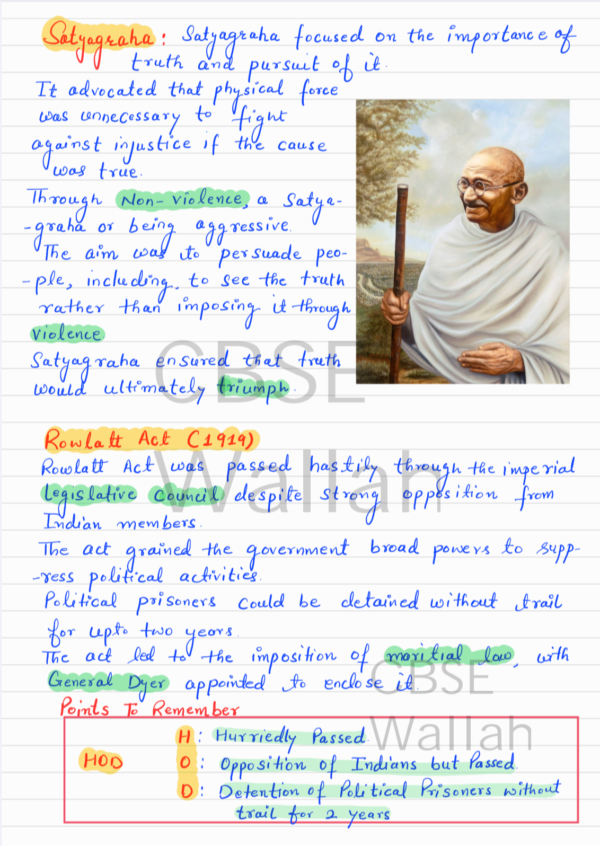 Satyagraha : Satyagraha focused on the importance of
truth and pursuit of it.
It advocated that physical force
was unnecessary to fight
against injustice if the cause
was true.
Through Non-violence, a Satya-
-graha or being aggressive.
The aim was to persuade peo-
-ple, including, to see the truth
rather than imposing it through
violence
Satyagraha ensured that truth
would ultimately triumph.
CBSE
Wallah
Rowlatt Act (1919)
Rowlatt Act was passed hastily through the imperial
legislative Council despite strong opposition from
Indian members.
The act grained the government broad powers to supp-
-ress political activities.
Political prisoners could be detained without trail
for upto two years.
The act led to the imposition of maritial law, with
General Dyer appointed to enclose it
CBSE
Wallah
Points To Remember
HOD
H : Hurriedly Passed.
O : Opposition of Indians but Passed.
D : Detention of Political Prisoners without
trail for 2 years